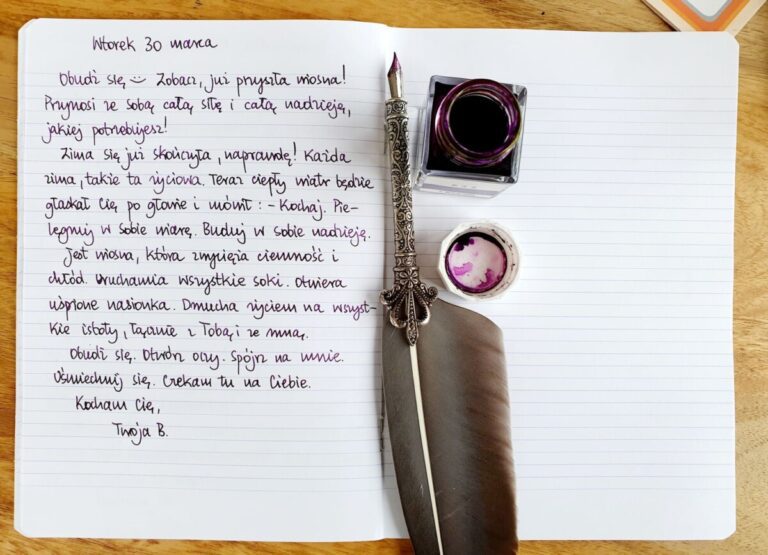 Wtorek 30 marca
Obudź się :) Zobacz, już przyszła wiosna!
Przynosi ze sobą całą siłę i całą nadzieję,
jakiej potrzebujesz!
Zima się już skończyła, naprawdę! Każda
zima, także ta życiowa. Teraz ciepły wiatr będzie
głaskał Cię po głowie i mówił: - Kochaj. Pie-
lęgnuj w sobie wiarę. Buduj w sobie nadzieję.
Jest wiosna, która zwycięża ciemność i
chłód. Uruchamia wszystkie soki. Otwiera
uśpione nasionka. Dmucha życiem na wszyst-
kie istoty, łącznie z Tobą i ze mną.
Obudź się. Otwórz oczy. Spójrz na mnie.
Uśmiechnij się. Czekam tu na Ciebie.
Kocham Cię,
Twoja B.